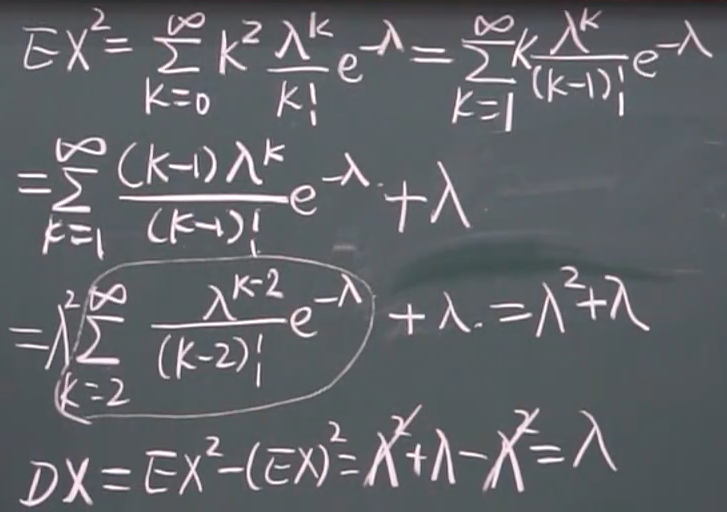 EX² = ∑_{k=0}^{∞} k² \frac{λ^k}{k!} e^{-λ} = ∑_{k=1}^{∞} k \frac{λ^k}{(k-1)!} e^{-λ}
= ∑_{k=1}^{∞} \frac{(k-1)λ^k}{(k-1)!} e^{-λ} + λ
= λ² ∑_{k=2}^{∞} \frac{λ^{k-2}}{(k-2)!} e^{-λ} + λ = λ² + λ
DX = EX² - (EX)² = λ² + λ - λ² = λ